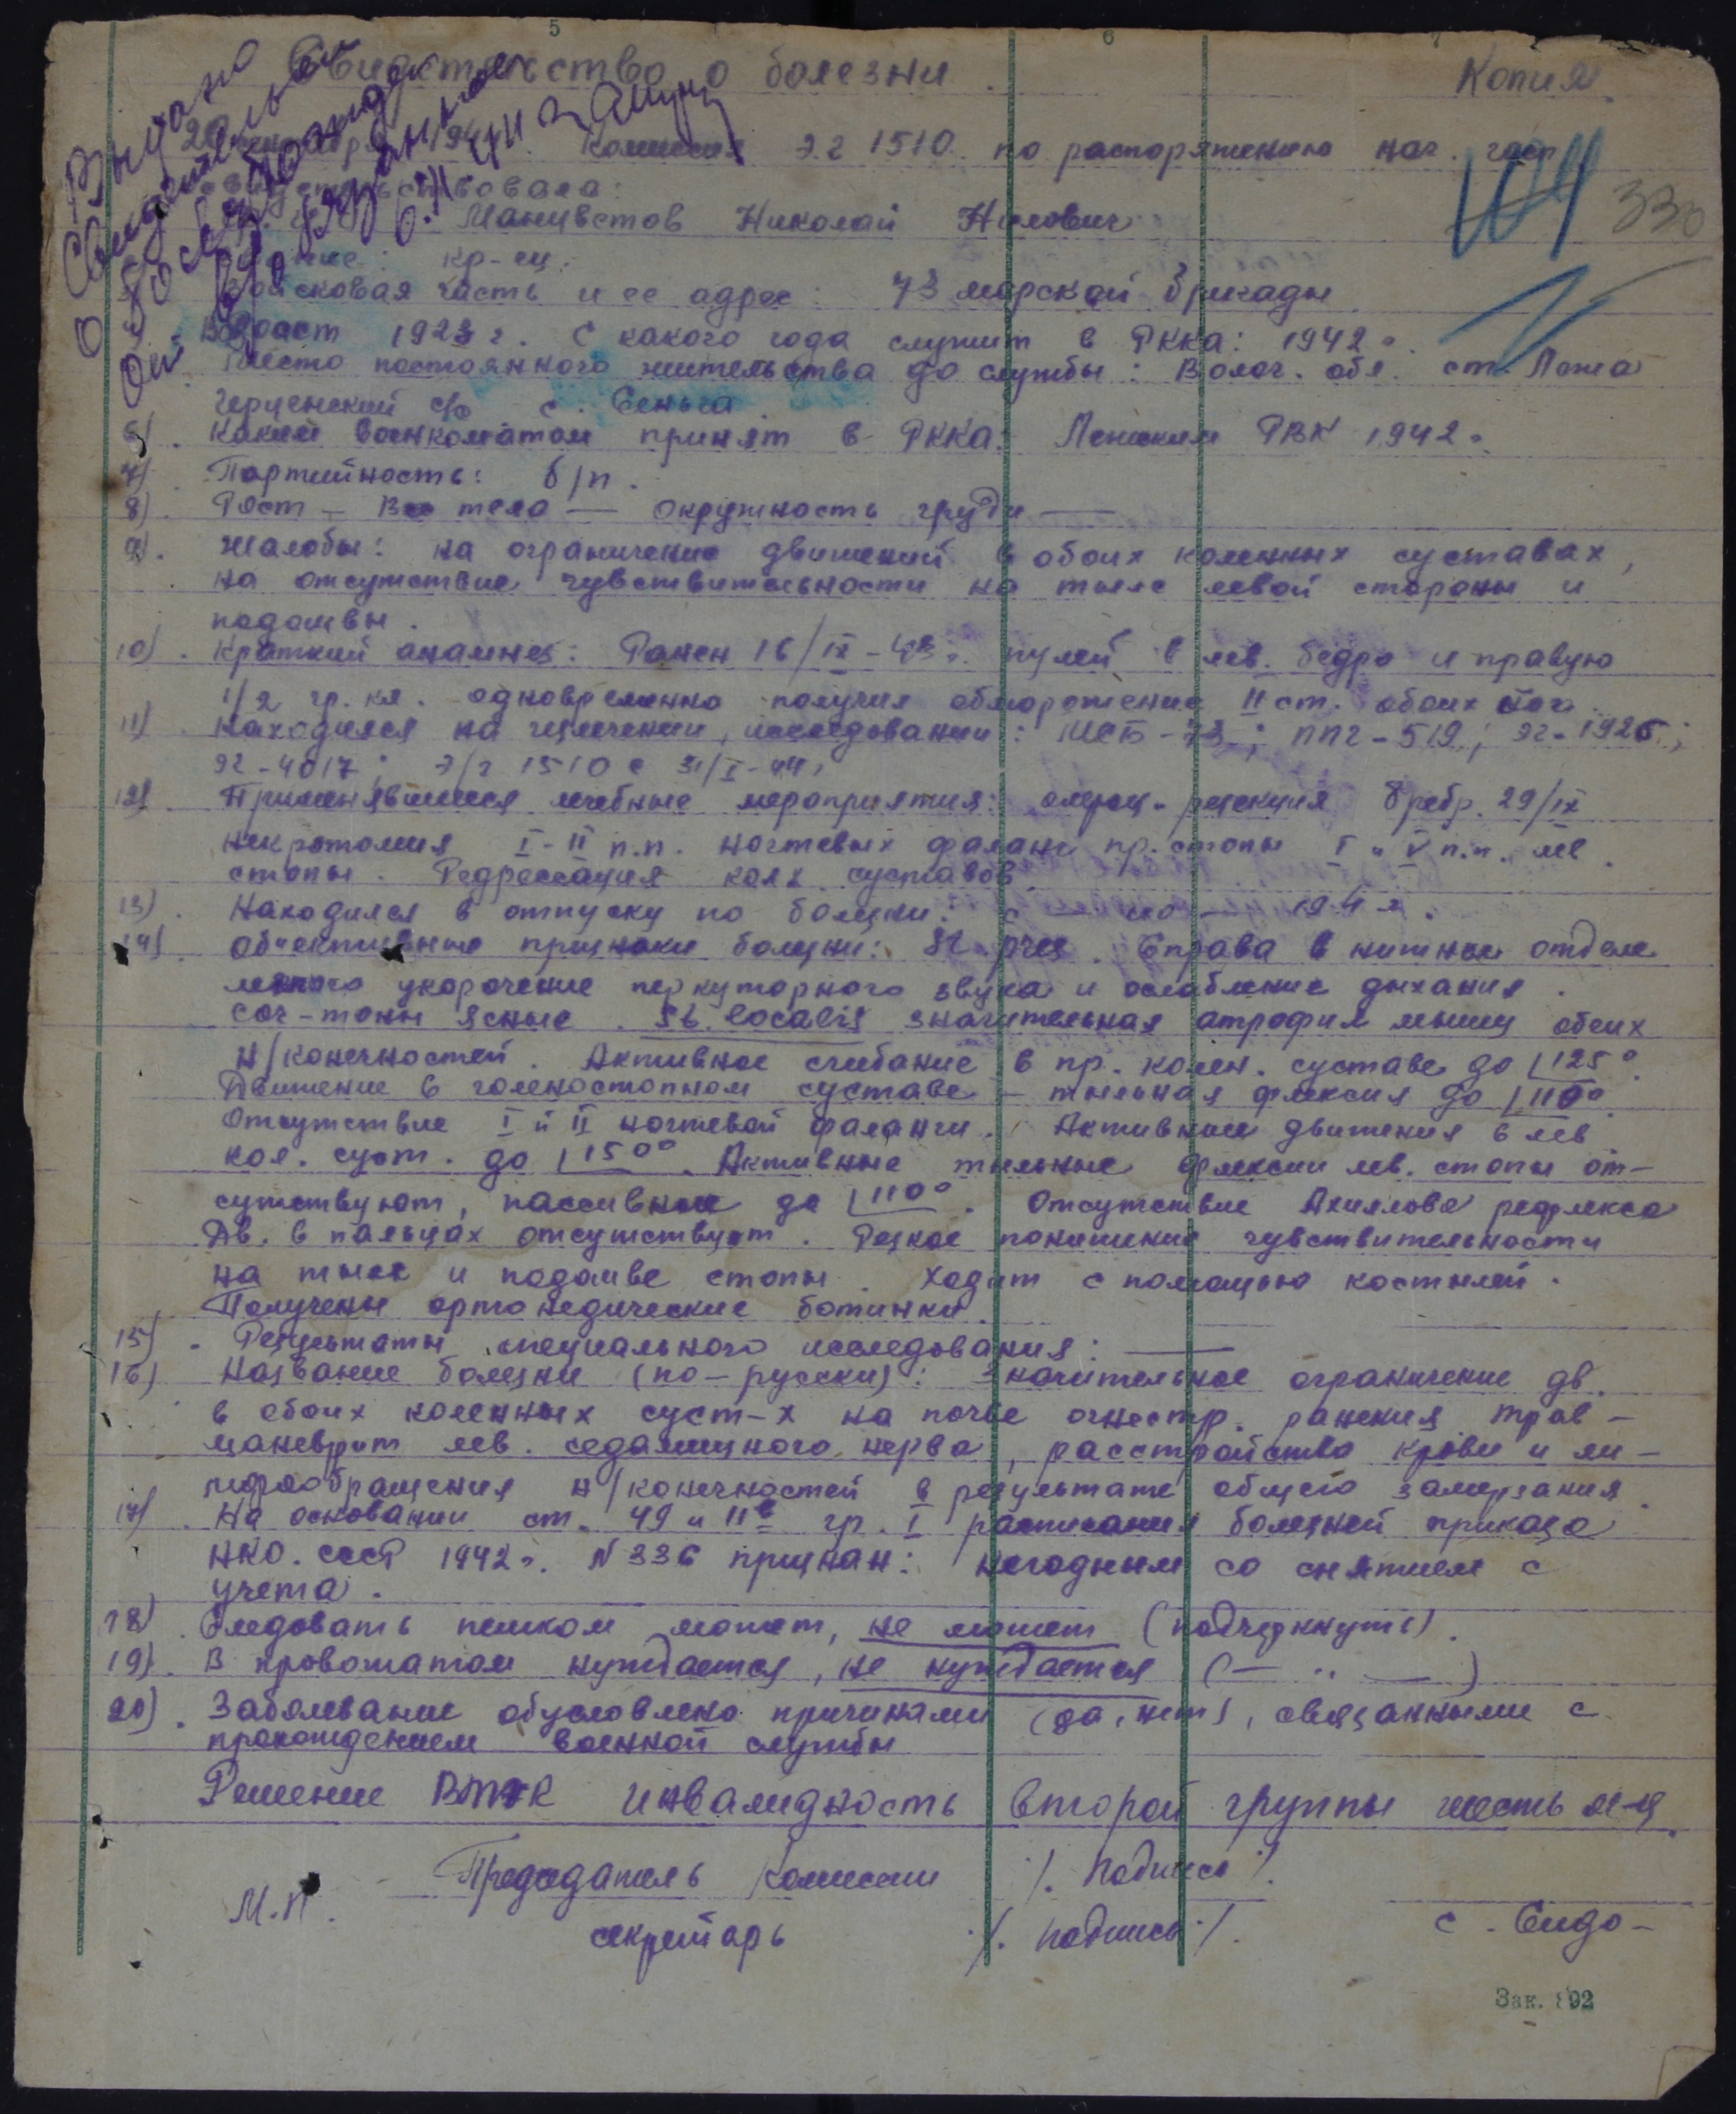 Свидетельство о болезни
Копия
194 . Комиссия ЭГ 1510 по распоряжению нач. госп.
освидетельствовала:
Манцветов Николай Нилович
104
330
звание: кр-ец.
Войсковая часть и ее адрес: 73 морской бригады
Возраст 1923 г. С какого года служит в РККА: 1942 г.
Место постоянного жительства до службы: Волог. обл. ст. Лежа
с/с с. Сеньга
6) Каким военкоматом принят в РККА: РВК 1942 г.
7) Партийность: б/п.
8) Рост — Вес тела — окружность груди —
9). Жалобы: на ограничение движений в обоих коленных суставах,
на отсутствие чувствительности на тыле левой стороны и
подошвы.
10). Краткий анамнез: Ранен 16/IX-43 г. пулей в лев. бедро и правую
1/2 гр. кл. одновременно получил обморожение II ст. обоих ног.
11). Находился на излечении, исследовании: МСБ-73; ППГ-519; ЭГ-1926;
ЭГ-4017; Э/г 1510 с 31/I-44г
12). Применявшиеся лечебные мероприятия: резекция 8 ребр. 29/IX
некротомия I-II п.п. ногтевых фаланг пр. стопы I и V п.п. лев.
стопы. Редрессация кол. суставов.
13). Находился в отпуску по болезни: с — по — 194 г.
14). Объективные признаки болезни: St. . Справа в нижнем отделе
легкого укорочение перкуторного звука и ослабление дыхания.
Сог-тоны ясные. St. localis значительная атрофия мышц обеих
н/конечностей. Активное сгибание в пр. колен. суставе до ∠125°.
Движение в голеностопном суставе — тыльная флексия до ∠110°.
Отсутствие I и II ногтевой фаланги. Активные движения в лев.
кол. суст. до ∠150°. Активные тыльные флексии лев. стопы от-
сутствуют, пассивные до ∠110°. Отсутствие Ахиллова рефлекса
Дв. в пальцах отсутствуют. Резкое понижение чувствительности
на тыле и подошве стопы. Ходит с помощью костылей.
Получены ортопедические ботинки.
15). Результаты специального исследования: —
16) Название болезни (по-русски): Значительное ограничение дв.
в обоих коленных суст-х на почве огнестр. ранения трав-
маневрит лев. седалищного нерва, расстройство крови и ли-
мфообращения н/конечностей в результате общего замерзания.
17). На основании ст. 49 и 11в гр. I расписания болезней приказа
НКО. СССР 1942 г. N 336 признан: негодным со снятием с
учета.
18). Следовать пешком может, не может (подчеркнуть).
19). В провожатом нуждается, не нуждается (— " —)
20). Заболевание обусловлено причинами (да, нет), связанными с
прохождением военной службы
Решение ВТЭК инвалидность второй группы шесть м-ц.
Председатель комиссии /. подпись /.
М.П.
секретарь /. подпись /.
Зак. 892